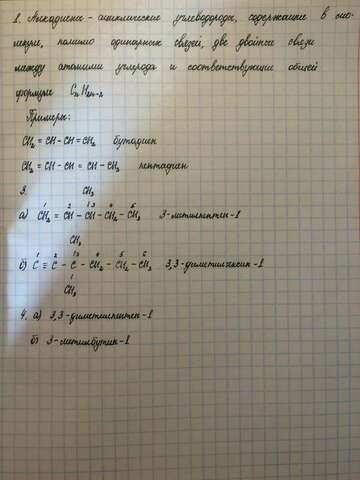 1. Алкадиены - ациклические углеводороды, содержащие в мо-
лекуле, помимо одинарных связей, две двойные связи
между атомами углерода и соответствующие общей
формуле CnH2n-2
Примеры:
CH2 = CH - CH = CH2 бутадиен
CH2 = CH - CH = CH - CH3 пентадиен
3. CH3
1 2 13 4 5
а) CH2 = CH - CH - CH2 - CH3 3-метилпентен-1
CH3
1 2 13 4 5 6
б) C ≡ C - C - CH2 - CH2 - CH3 3,3-диметилгексин-1
1
CH3
4. а) 3,3-диметилпентен-1
б) 3-метилбутин-1